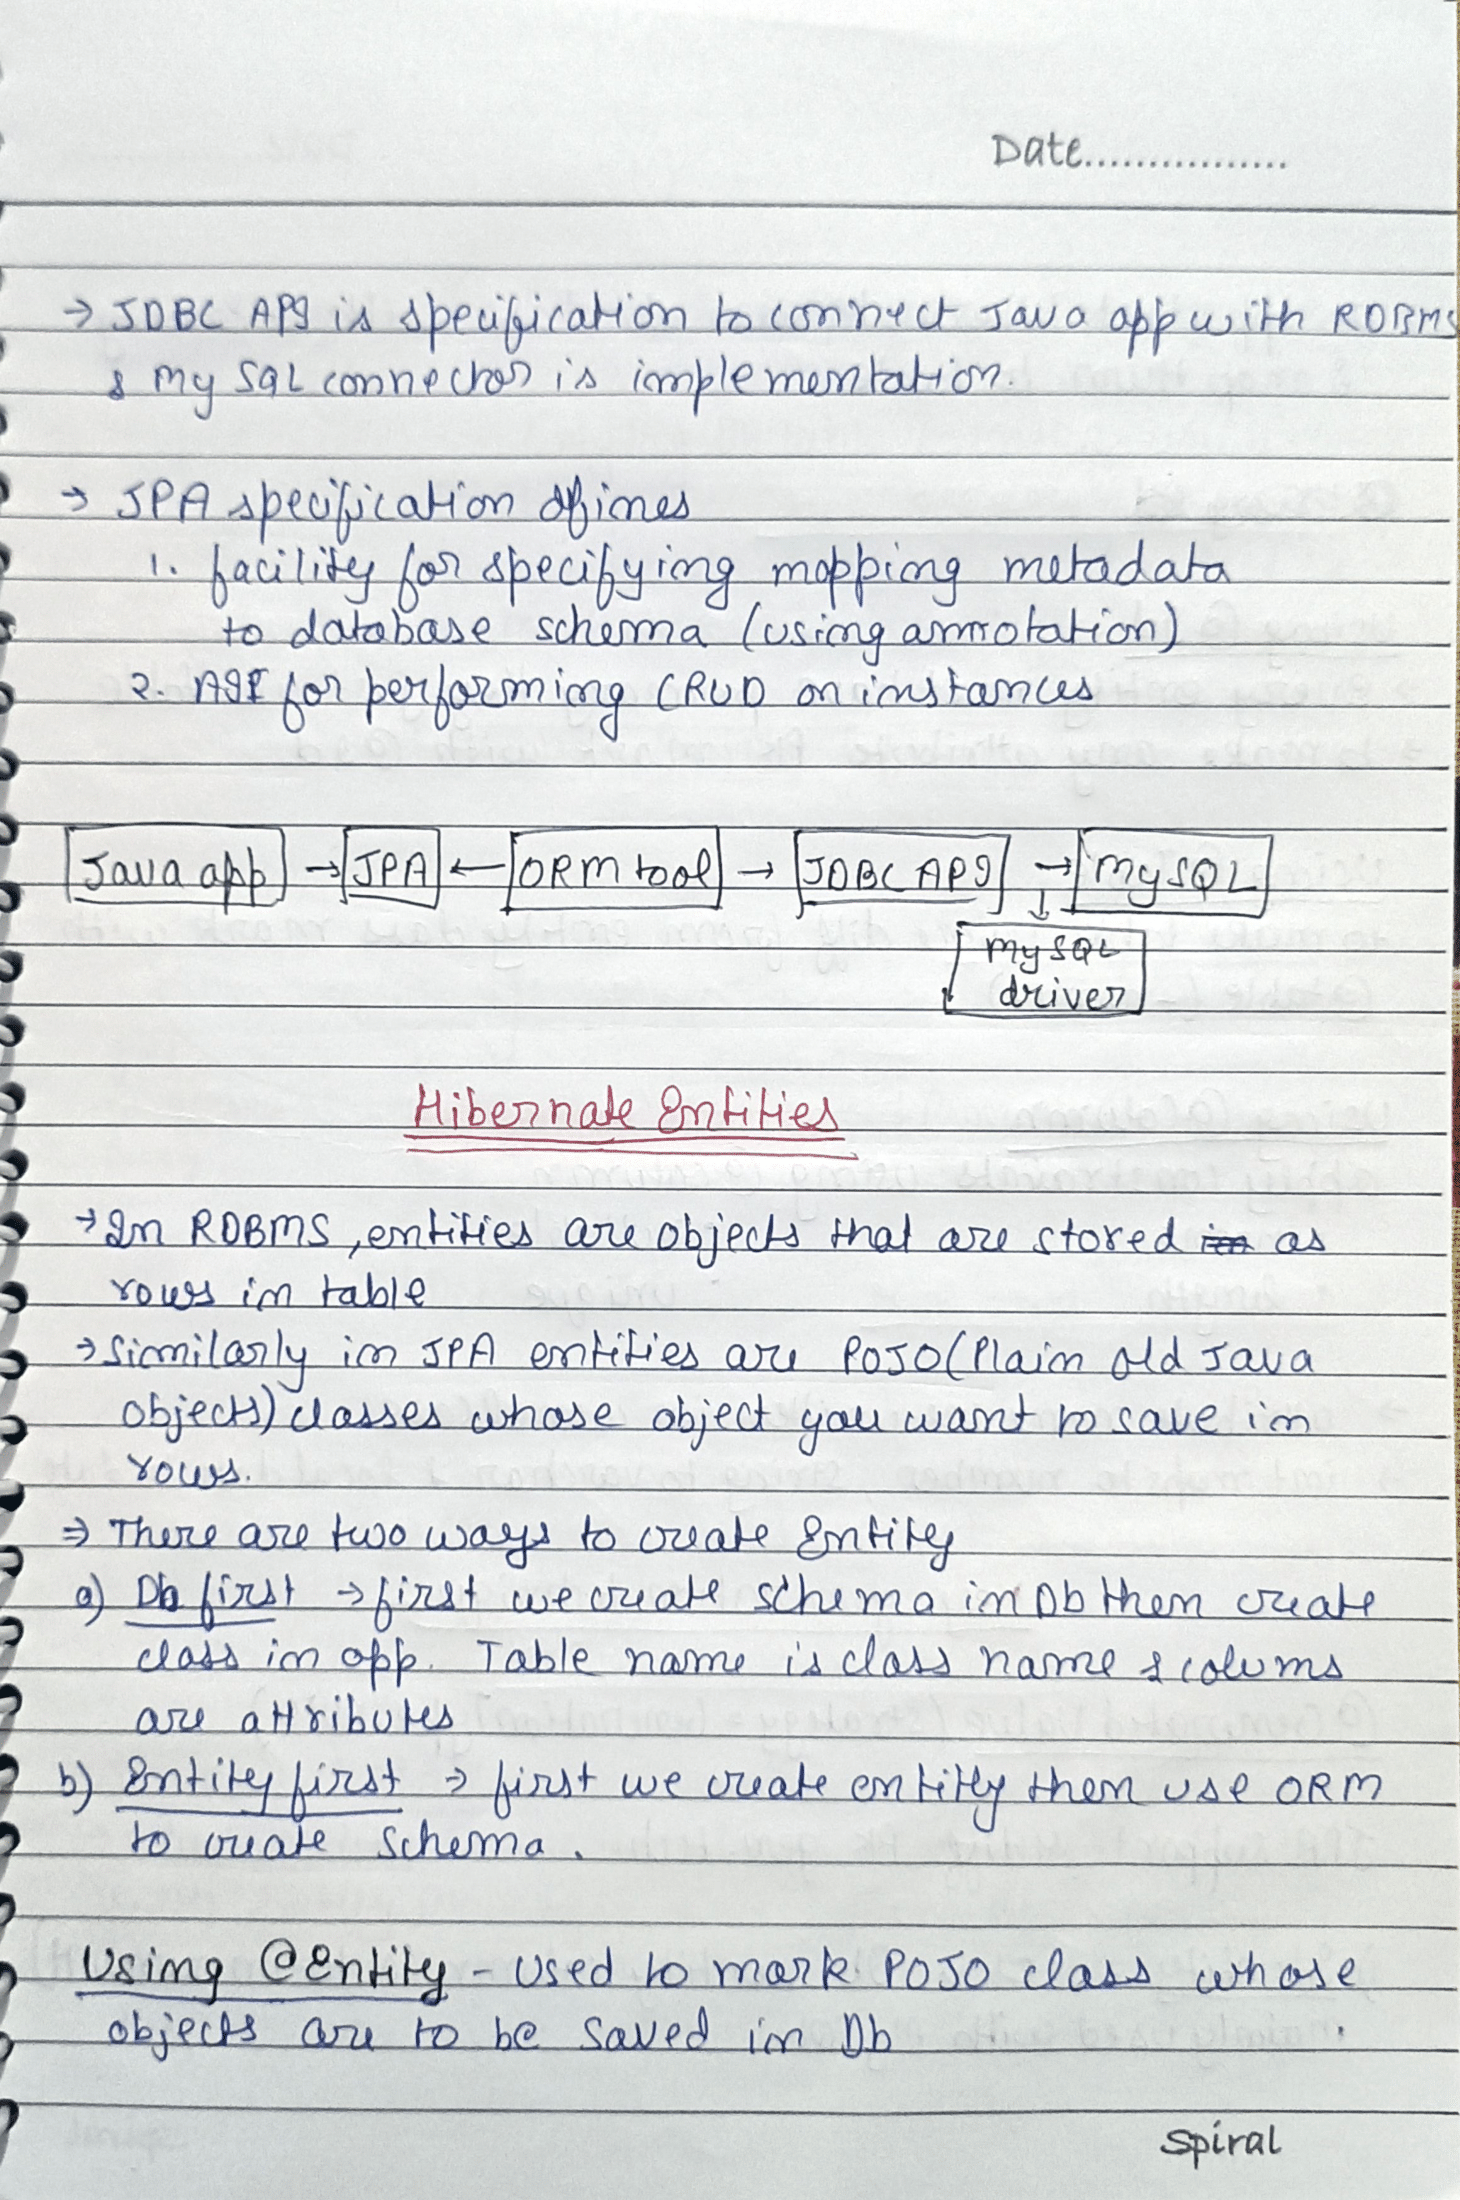 Date.................
→ JDBC API is specification to connect Java app with RDBMS
& My SQL connector is implementation.
→ JPA specification dfines
1. facility for specifying mapping metadata
to database schema (using annotation)
2. API for performing CRUD on instances
Java app → JPA ← ORM tool → JDBC API → MySQL
↓
MySQL
driver
Hibernate Entities
→ In RDBMS, entities are objects that are stored in as
rows in table
→ Similarly in JPA entities are POJO (Plain old Java
objects) classes whose object you want to save in
rows.
⇒ There are two ways to create Entity
a) Db first → first we create schema in Db then create
class in app. Table name is class name & colums
are attributes
b) Entity first → first we create entitly then use ORM
to create schema.
Using @Entity - Used to mark POJO class whose
objects are to be saved in Db
Spiral